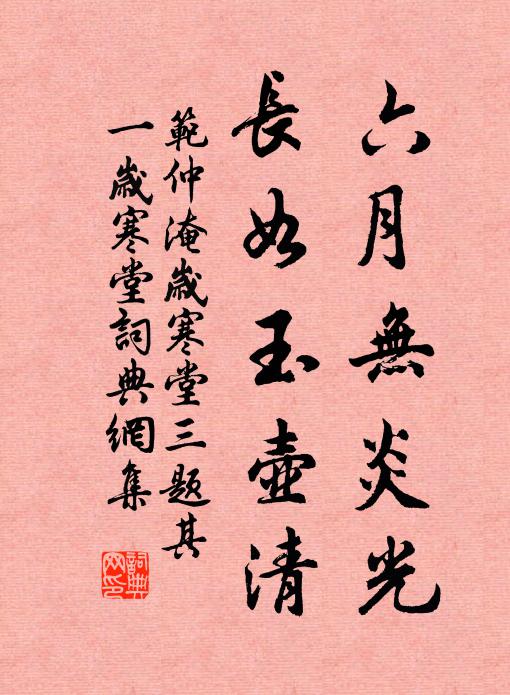 六月無炎光
長如玉壺清
範仲淹歲寒堂三題其
一歲寒堂詞典網集
詞典網印